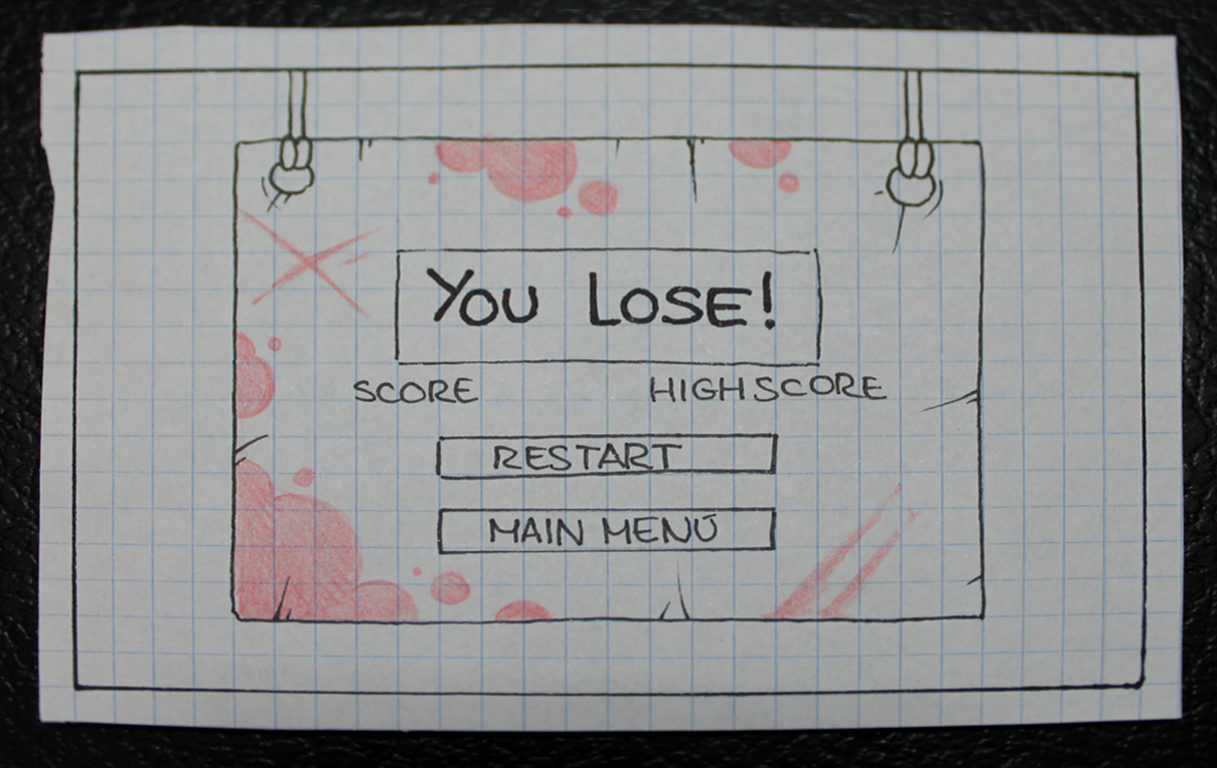 YOU LOSE!
SCORE HIGHSCORE
RESTART
MAIN MENÚ